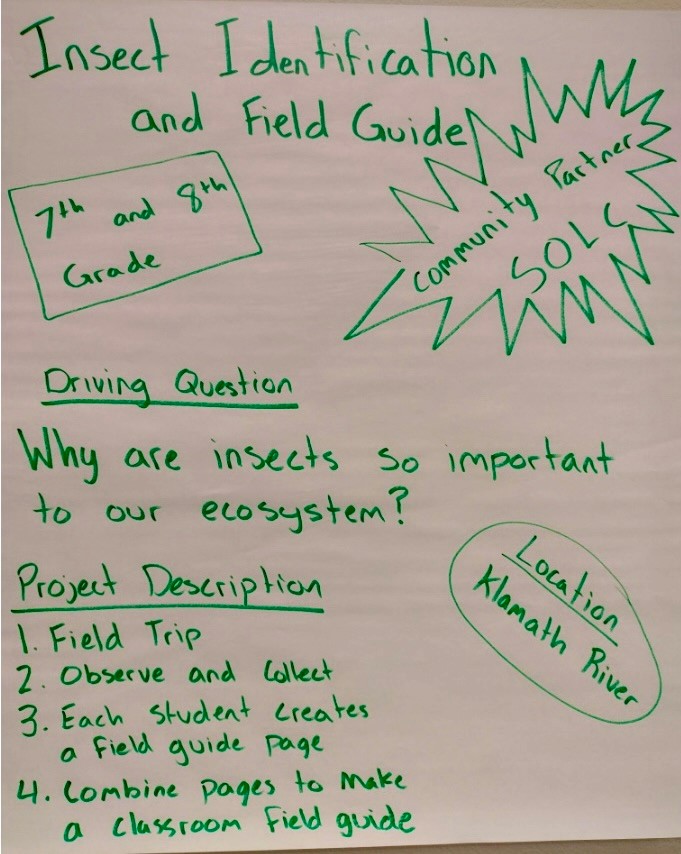 Insect Identification
and Field Guide
Community Partner
SOLC
7th and 8th
Grade
Driving Question
Why are insects so important
to our ecosystem?
Location
Klamath River
Project Description
1. Field Trip
2. Observe and Collect
3. Each student creates
a field guide page
4. Combine pages to make
a classroom field guide